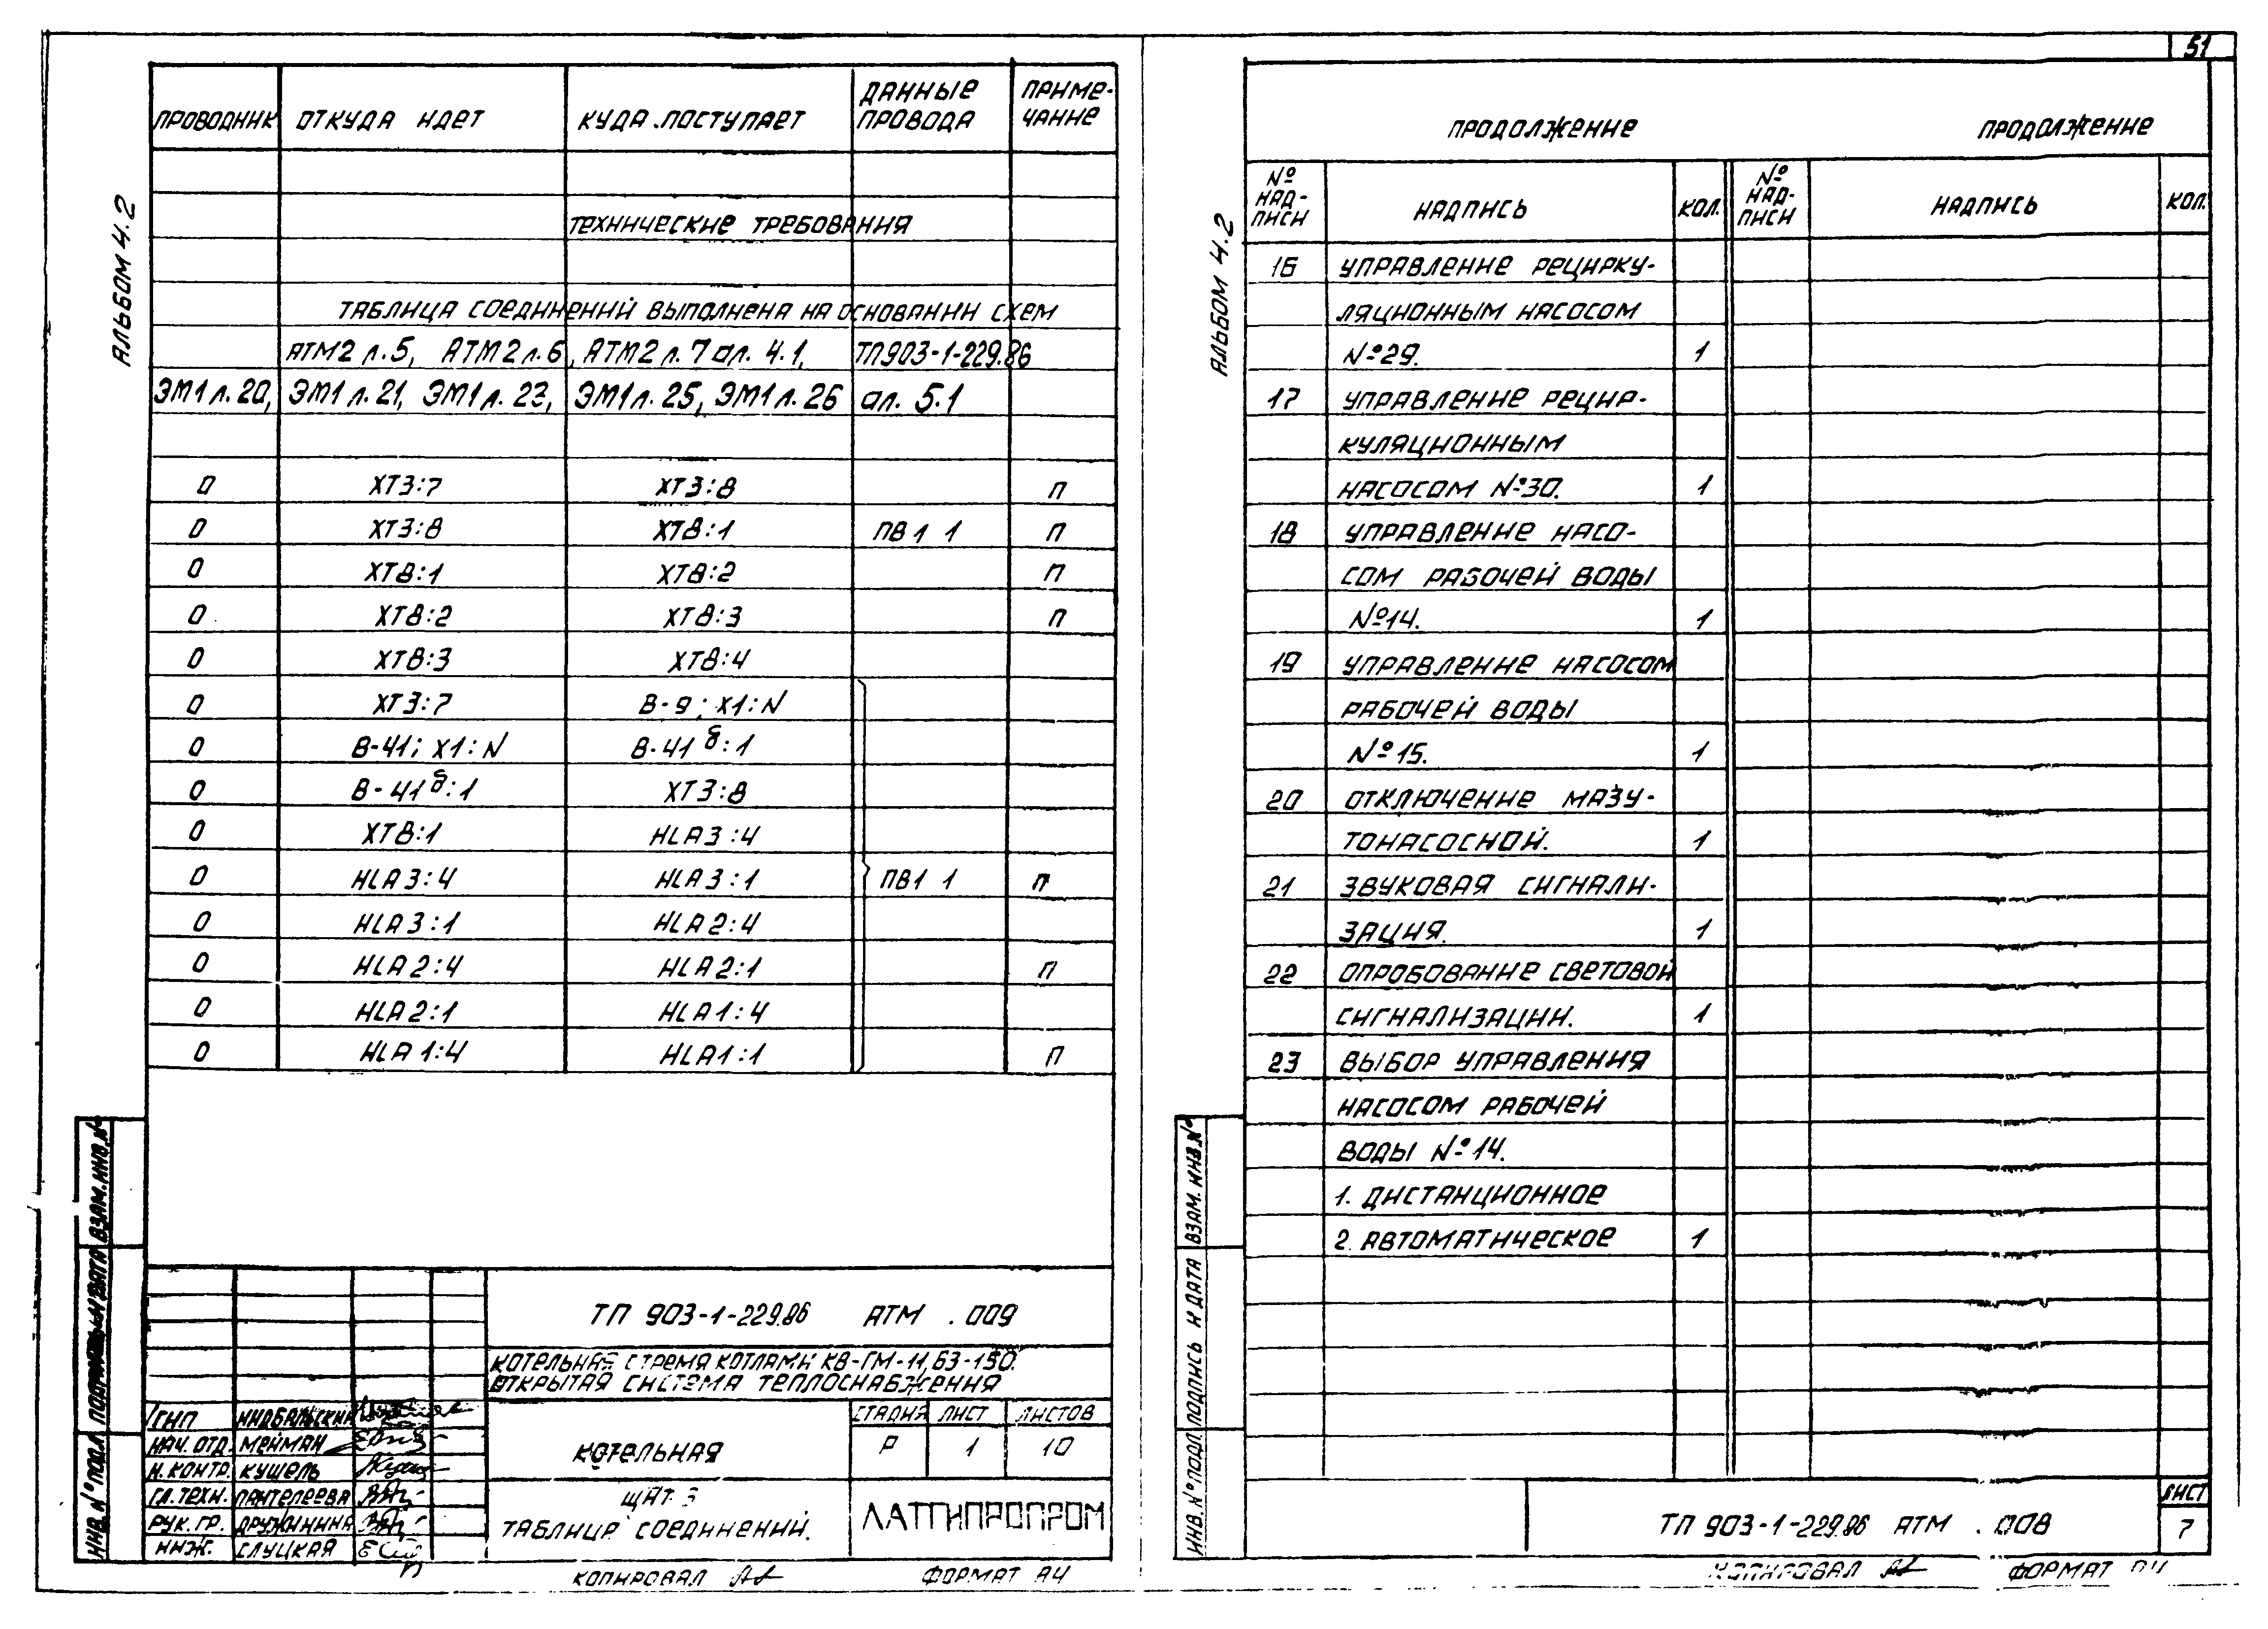 51
АЛЬБОМ 4.2
ПРОВОДНИК ОТКУДА ИДЕТ КУДА ПОСТУПАЕТ ДАННЫЕ ПРОВОДА ПРИМЕ-ЧАНИЕ
ТЕХНИЧЕСКИЕ ТРЕБОВАНИЯ
ТАБЛИЦА СОЕДИНЕНИЙ ВЫПОЛНЕНА НА ОСНОВАНИИ СХЕМ
АТМ2 л.5, АТМ2 л.6, АТМ2 л.7 ал. 4.1, ТП903-1-229.86
ЭМ1 л.20, ЭМ1 л.21, ЭМ1 л.23, ЭМ1 л.25, ЭМ1 л.26 ал. 5.1
0 ХТ3:7 ХТ3:8 П
0 ХТ3:8 ХТ8:1 ПВ1 1 П
0 ХТ8:1 ХТ8:2 П
0 ХТ8:2 ХТ8:3 П
0 ХТ8:3 ХТ8:4
0 ХТ3:7 В-9; Х1:N
0 В-41; Х1:N В-41б:1
0 В-41б:1 ХТ3:8
0 ХТ8:1 HLA3:4
0 HLA3:4 HLA3:1 ПВ1 1 П
0 HLA3:1 HLA2:4
0 HLA2:4 HLA2:1 П
0 HLA2:1 HLA1:4
0 HLA1:4 HLA1:1 П
ВЗАМ. ИНВ. №
ИНВ. № ПОДЛ.
ТП 903-1-229.86 АТМ .009
КОТЕЛЬНАЯ С ТРЕМЯ КОТЛАМИ КВ-ГМ-11,63-150.
ОТКРЫТАЯ СИСТЕМА ТЕПЛОСНАБЖЕНИЯ
ГИП
НАЧ. ОТД. МЕЙМАН
Н. КОНТР. КУШЕЛЬ
ГЛ. ТЕХН. ПАНТЕЛЕЕВА
РУК. ГР. ДРУЖИНИНА
ИНЖ. СЛУЦКАЯ
КОТЕЛЬНАЯ
СТАДИЯ ЛИСТ ЛИСТОВ
Р 1 10
ЩИТ 3
ТАБЛИЦА СОЕДИНЕНИЙ.
ЛАТГИПРОПРОМ
КОПИРОВАЛ ФОРМАТ А4
АЛЬБОМ 4.2
ПРОДОЛЖЕНИЕ ПРОДОЛЖЕНИЕ
№ НАД-ПИСИ НАДПИСЬ КОЛ. № НАД-ПИСИ НАДПИСЬ КОЛ.
16 УПРАВЛЕНИЕ РЕЦИРКУ-
ЛЯЦИОННЫМ НАСОСОМ
№29. 1
17 УПРАВЛЕНИЕ РЕЦИР-
КУЛЯЦИОННЫМ
НАСОСОМ №30. 1
18 УПРАВЛЕНИЕ НАСО-
СОМ РАБОЧЕЙ ВОДЫ
№14. 1
19 УПРАВЛЕНИЕ НАСОСОМ
РАБОЧЕЙ ВОДЫ
№15. 1
20 ОТКЛЮЧЕНИЕ МАЗУ-
ТОНАСОСНОЙ. 1
21 ЗВУКОВАЯ СИГНАЛИ-
ЗАЦИЯ. 1
22 ОПРОБОВАНИЕ СВЕТОВОЙ
СИГНАЛИЗАЦИИ. 1
23 ВЫБОР УПРАВЛЕНИЯ
НАСОСОМ РАБОЧЕЙ
ВОДЫ №14.
1. ДИСТАНЦИОННОЕ
2. АВТОМАТИЧЕСКОЕ 1
ВЗАМ. ИНВ. №
ПОДПИСЬ И ДАТА
ИНВ. № ПОДЛ
ТП 903-1-229.86 АТМ .008
ЛИСТ
7
КОПИРОВАЛ ФОРМАТ А4